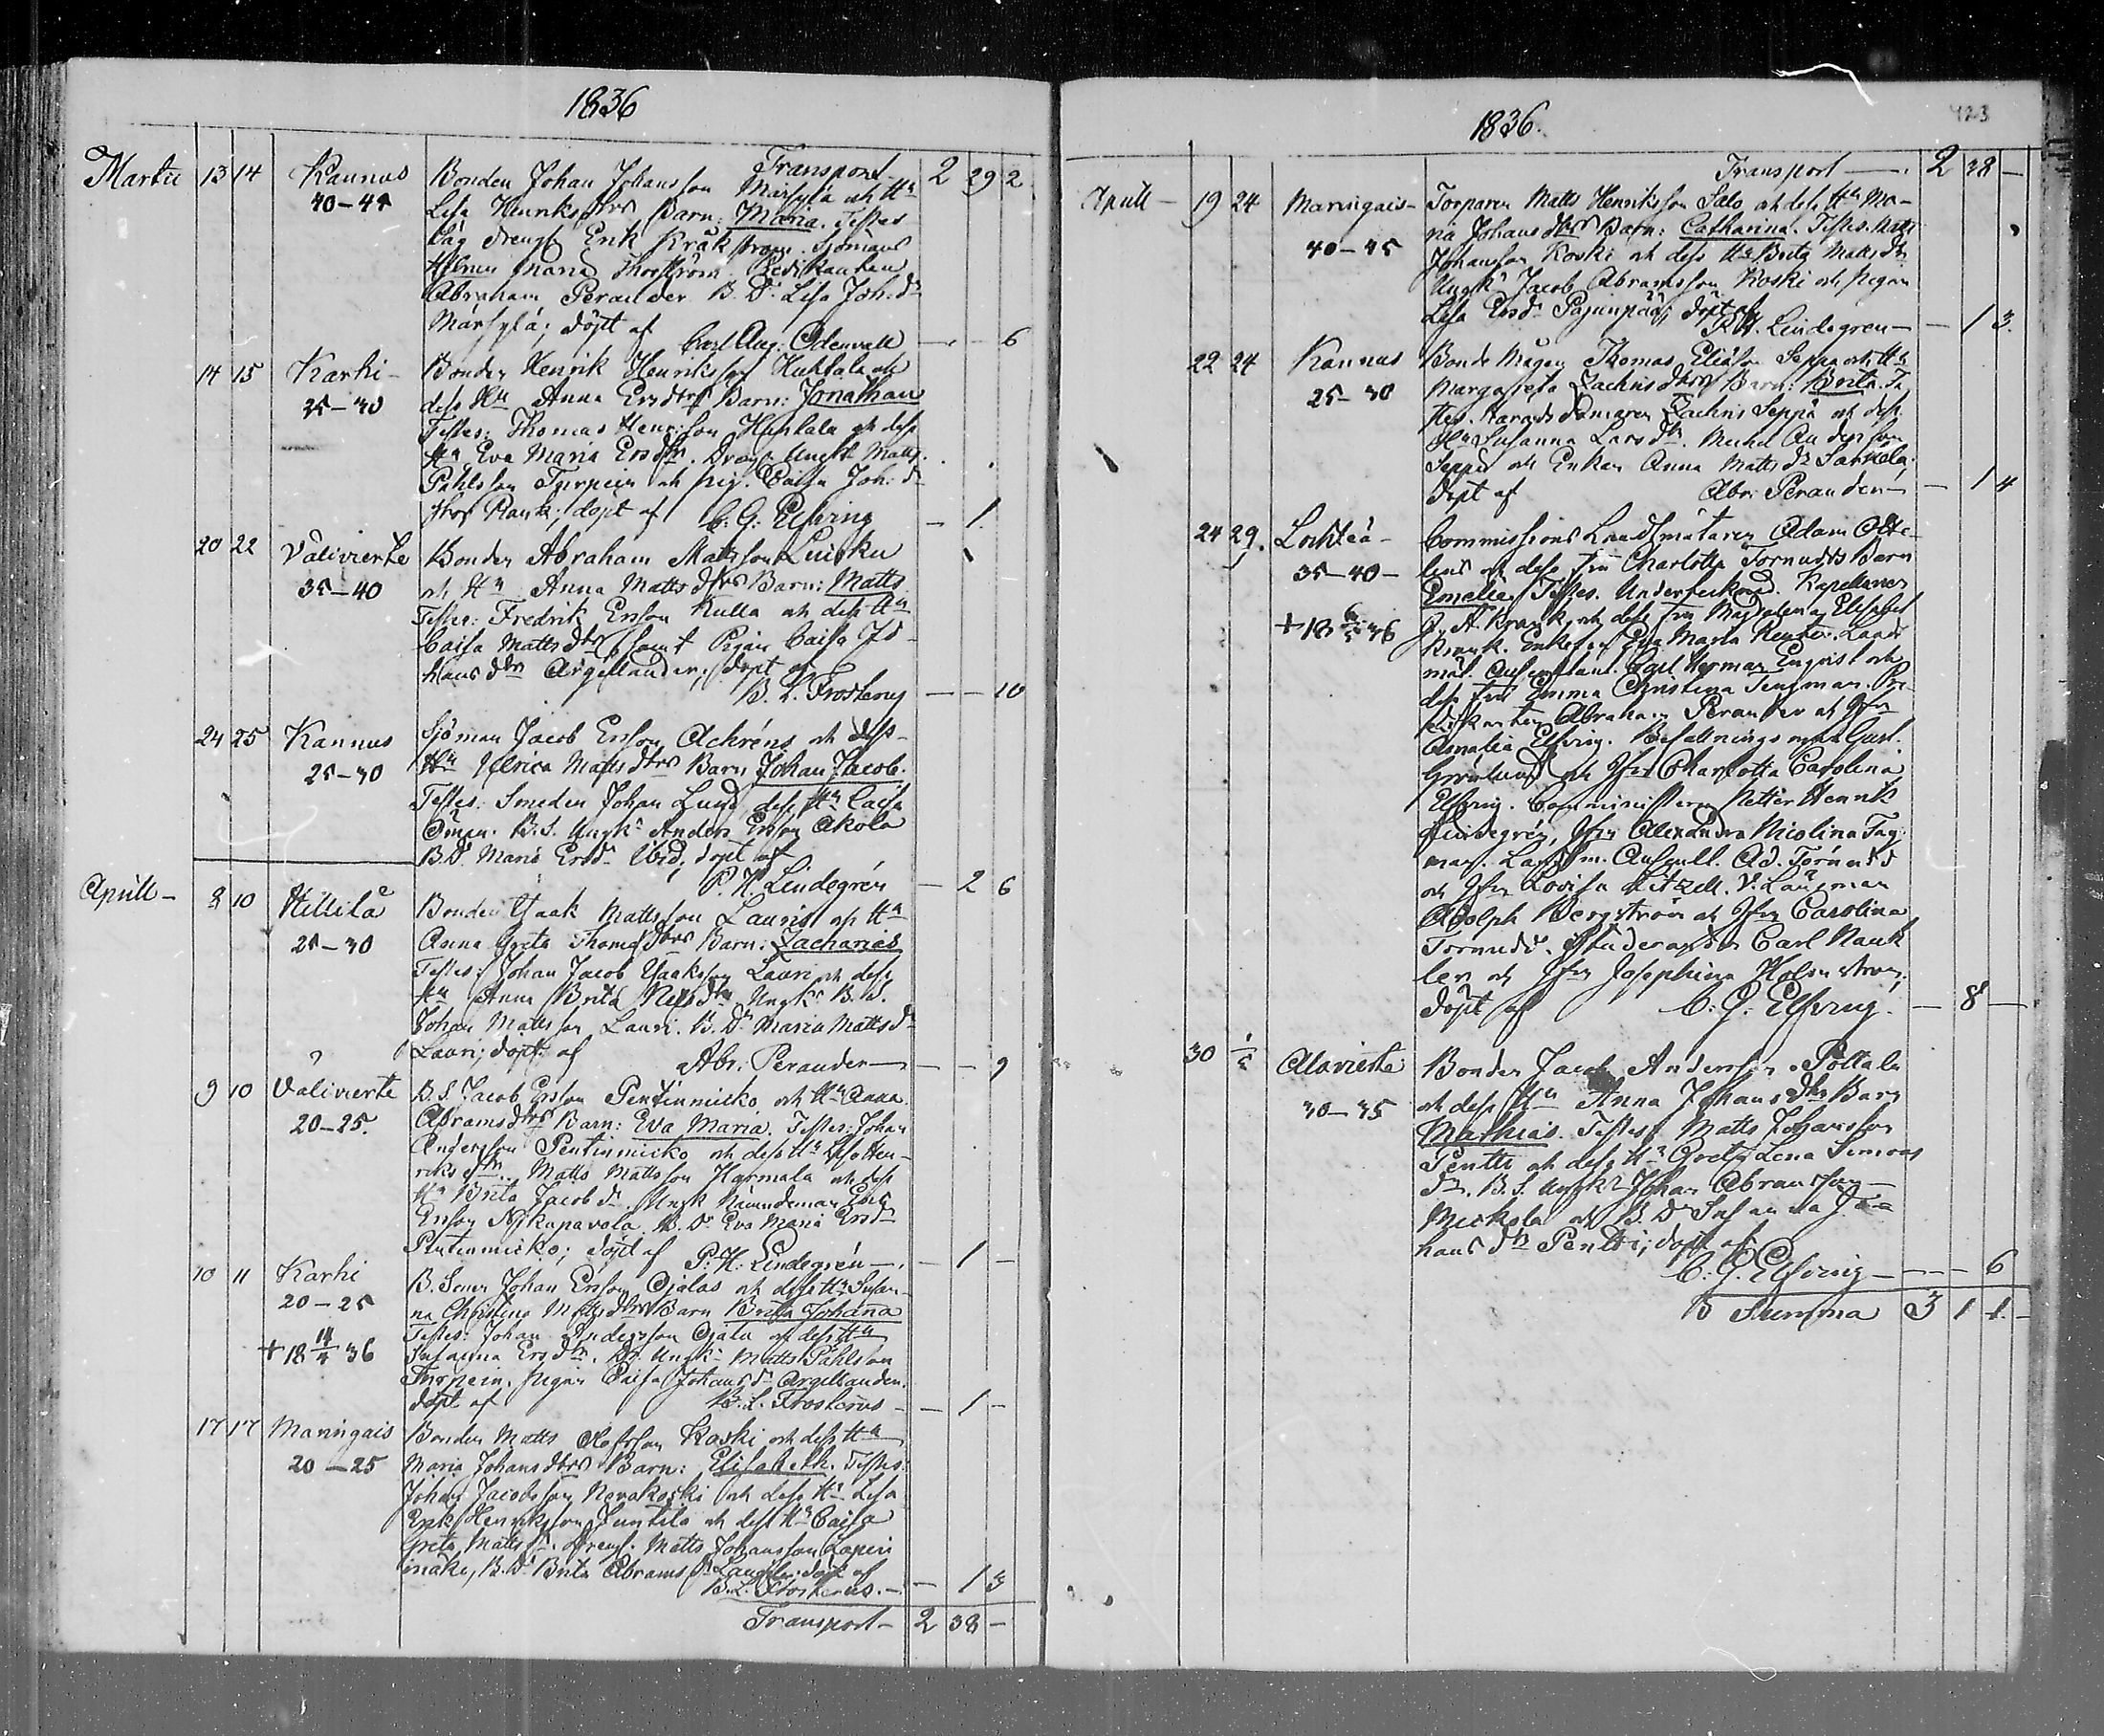 1836
Transport 2 29 2
Martii 13 14 Kannus Bonden Johan Johansson Märsylä och Hu
40-44 Lisa Henriksdtrs Barn: Maria. Testes
Erik Kråkström. Sjömans
Maria Predikanten
Abraham Perander B. Dr Lisa Joh:dr
Märsylä; döpt af Carl Aug. Odenvall — 6
14 15 Karhi- Bonden Henrik Henriksson Huhtala och
25-30 dess Hu Anna Ersdtrs Barn: Jonathan
Testes: Thomas Henr:son Huhtala och dess
Hu Eva Maria Ersdtr. Matts
Påhlsson Tyrpein och pig. Caisa Joh:dr
döpt af C. G. Elfving — 1.
20 22 Vålivierke Bonden Abraham Mattsson Luisku
35-40 och Hu Anna Mattsdtrs Barn: Matts
Testes: Fredrik Ersson Kulla och dess Hu
Caisa Mattsdtr, samt Pigan Caisa Jo-
hansdtr Argillander; döpt af
B. L. Frosterus — — 10
24 25 Kannus Sjöman Jacob Ersson Achréns och dess
25-30 Hu Ulrica Mattsdtrs Barn Johan Jacob.
Testes: Smeden Johan Lund, dess Hu Caisa
Öman. B. S. Ungkn Anders Ersson Akola
B.Dr Maria Ersdr ibid; döpt af
P. H. Lindegrén — 2 6
Aprill - 8 10 Hillilä Bonden Isaak Mattsson Lauris och Hu
25-30 Anna Greta Thomasdtrs Barn: Zacharias
Testes: Johan Jacob Isaaksson Lauri och dess
Hu Anna Brita Nilsdtr Ungkn B. S.
Johan Mattsson Lauri. B. Dr Maria Mattsdr
Lauri; döpt af Abr. Perander — — 9
9 10 Vålivierke B. S. Jacob Ersson Pentinmicko och Hu Anna
20-25. Abramsdtrs Barn: Eva Maria. Testes: Johan
Andersson Pentinmicko och dess Hu Lisa Hen-
riksdtr. Matts Mattsson Harmala och dess
Hu Brita Jacobsdr. Ungk Nämndeman Eric
Ersson Nykupavola. B. Dr Eva Maria Ersdr
Pentinmicko; döpt af P. H. Lindegrén — 1 —
10 11 Karhi B. Sonen Johan Ersson Ojalas och dess Hu Susan-
20-25 na Christina Mattsdtrs Barn Brita Johanna
Testes: Johan Andersson Ojala och dess Hu
+ 18 14/4 36 Susanna Ersdtr. Dr. Ungkn Matts Påhlsson
Tyrpein. Pigan Caisa Johansdr Argillander.
döpt af B. L. Frosterus — 1 —
17 17 Maningais Bonden Matts Olofsson Koski och dess Hu
20-25 Maria Johansdtrs Barn: Elisabeth. Testes:
Johan Jacobsson Nevakoski och dess Hu Lisa
Erik Henriksson Juntila och dess Hu Caisa
Greta Mattsdr. Drengn Matts Johansson Lapin
mäki, B. Dr Brita Abramsdr döpt af
B. L. Frosterus. — 1 3
Transport — 2 38 —
1836.
423
Transport — 2 38 —
Aprill — 19 24 Maningais- Torparen Matts Henriksson Salo och dess Hu Ma-
40-45 ria Johansdtrs Barn: Catharina. Testes. Matts
Johansson Koski och dess Hu Brita Mattsdtr
Ungkn Jacob Abramsson Koski och pigan
Lisa Ersdr Pajunpää; döpt af
P. H. Lindegren — — 1 3.
22 24 Kannus Bonde Mågen Thomas Eliasson Seppä och Hu
25-30 Margareta Zachrisdtrs Barn: Brita. Te-
stes. Härads Domaren Zachris Seppä och dess
Hu Susanna Larsdtr. Michel Andersson
Seppä och Enkan Anna Mattsdr Särkelä;
döpt af Abr: Perander — — 1 4
24 29. Lochteå- Commissions Landtmätaren Adam Otte-
35-40- lins och dess Fru Charlotta Törnudds Barn
Emelie. Testes. Undertecknad. Kapellanen
+ 18 6/5 36 J. A. Krank och dess Fru Magdalena Elisabet
Krank. Enkefru Eva Maria Reuter. Landt
mät. Auscultant. Carl Herman Enqvist och
dess Fru Emma Christina Tengman. Pre-
dikanten Abraham Perander och Jfru
Amalia Elfving. Befallningsman Gust.
Grönlund och Jfru Charlotta Carolina
Elfving. Commministern Petter Henrik
Lindegrén, Jfru Alexandra Nicolina Tag-
man. Landtm. Auscult. Ad. Törnudd
och Jfru Lovisa Litzell. V. Länsman
Adolph Bergström och Jfru Carolina
Törnudd. Studeranden Carl Nauk
ler och Jfru Josephina Holmström;
döpt af C. G. Elfving. — 8 —
30 1/5 Alavierke Bonden Jacob Andersson Pöttala
30-35 och dess Hu Anna Johansdtrs Barn
Mathias. Testes: Matts Johansson
Pentti och dess Hu Greta Lena Simons
dr. B. S. Ungkn Johan Abramsson
Mickola och B. Dr Susanna Jo
hansdtr Pentti; döpt af
C. G. Elfving — — 6
Summa 3 1 1.